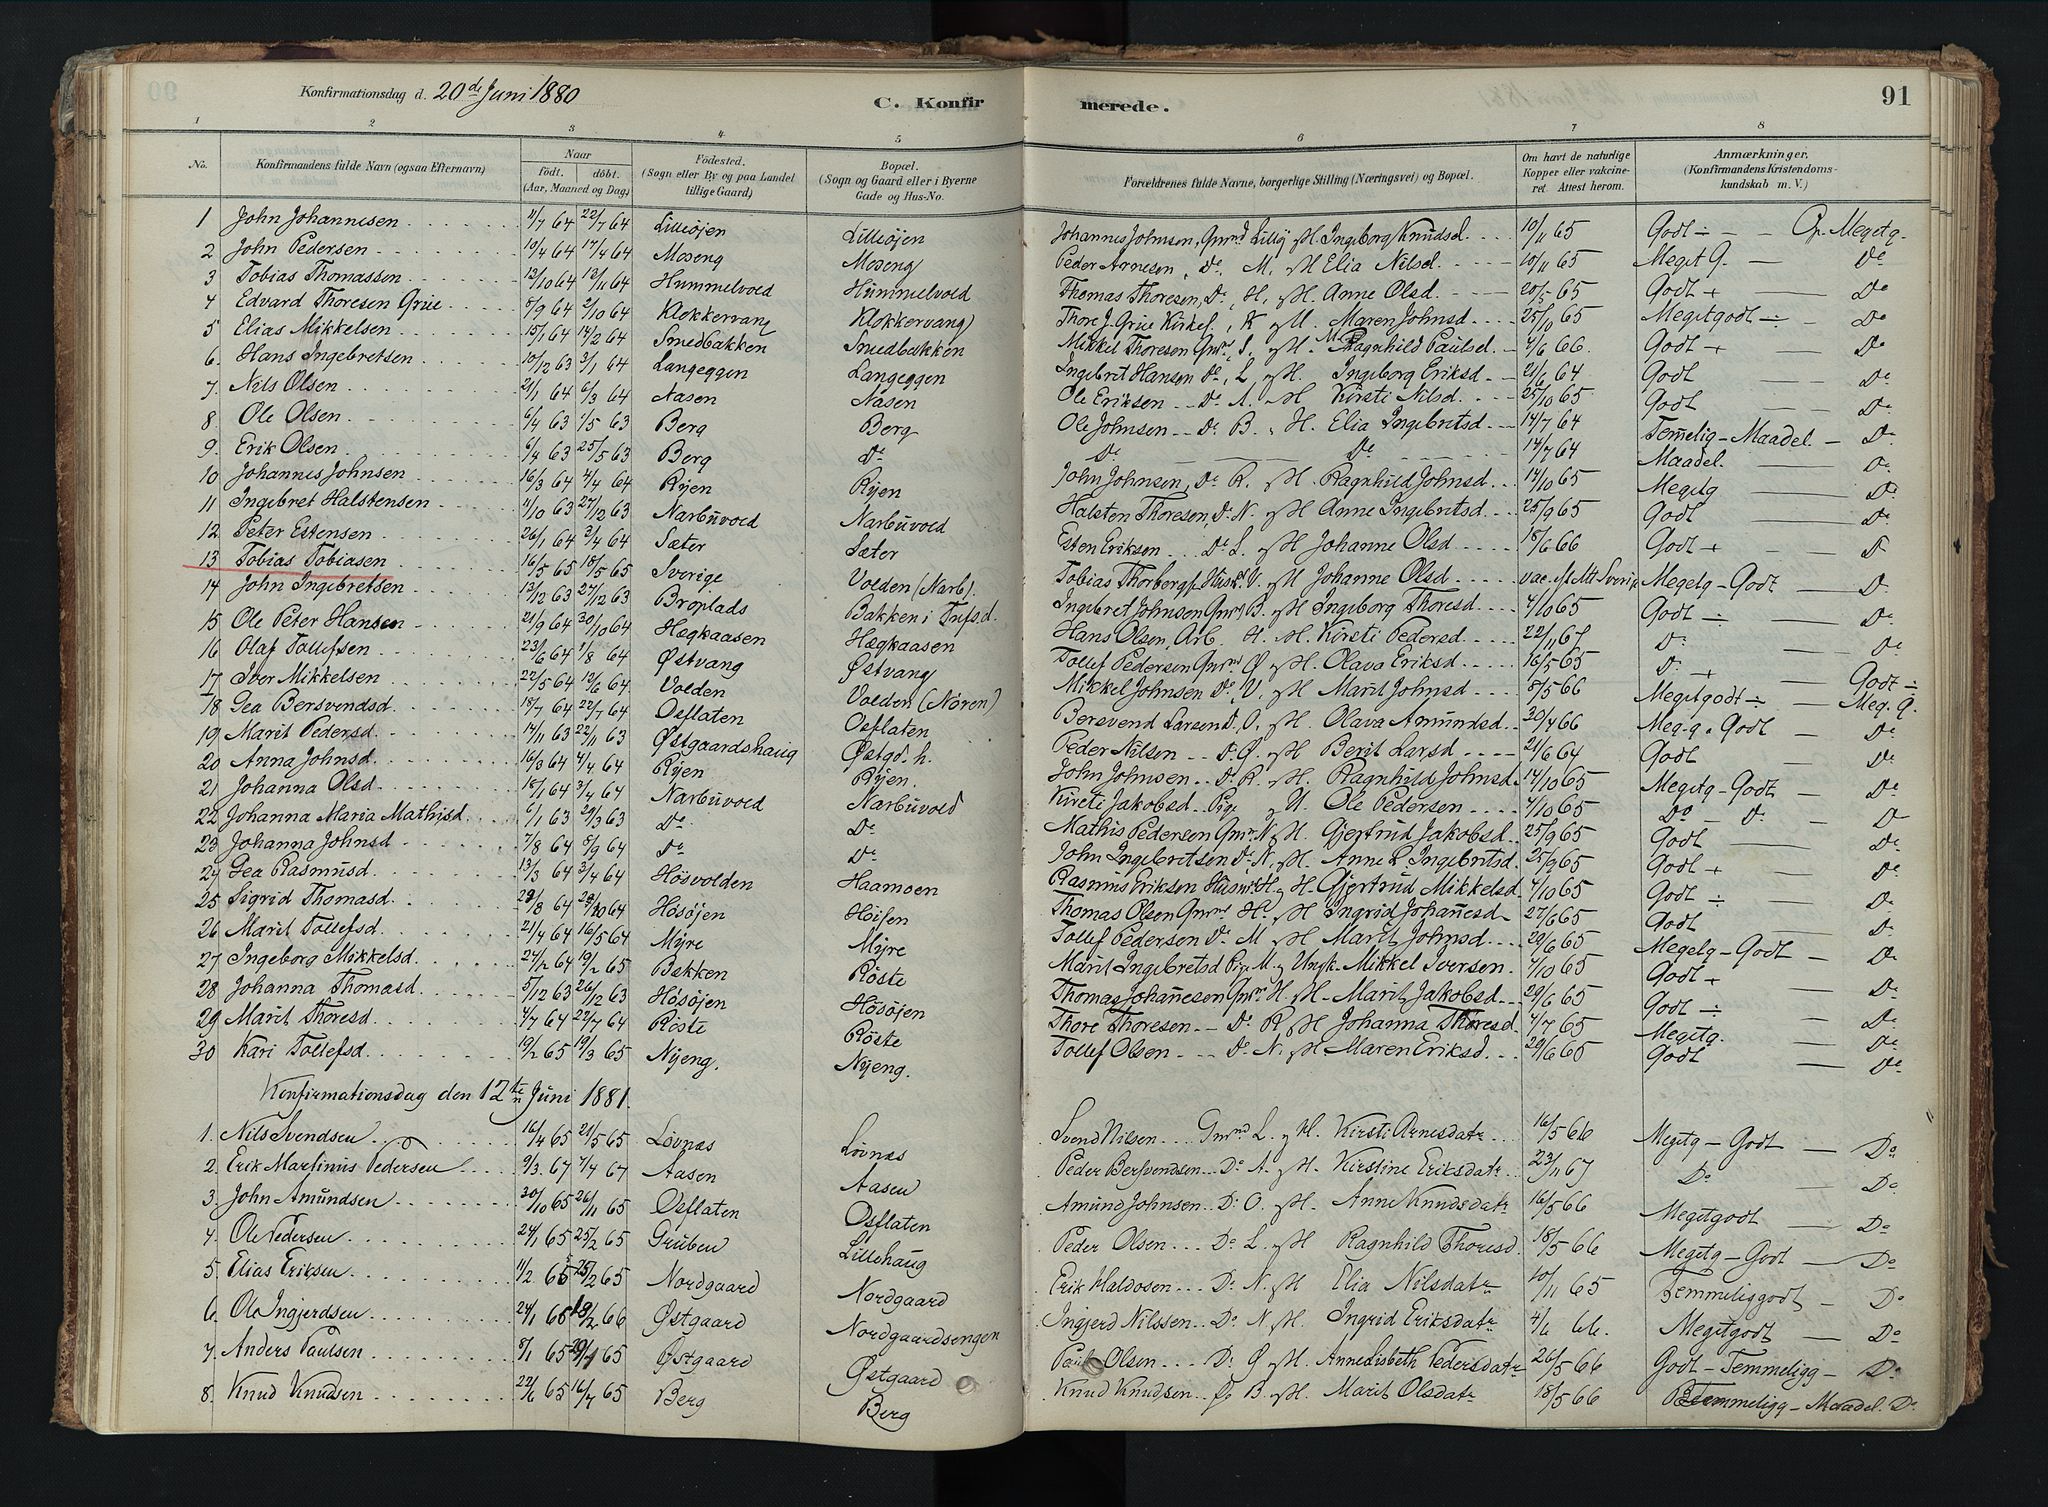 Konfirmationsdag d. 20de Juni 1880 C. Konfirmerede. 91
1 2 3 4 5 6 7 8
No. Konfirmandens fulde Navn (ogsaa Efternavn) Naar født. døbt. (Aar, Maaned og Dag) Födested. (Sogn eller By og paa Landet tillige Gaard) Bopæl. (Sogn og Gaard eller i Byerne Gade og Hus-No. Forældrenes fulde Navne, borgerlige Stilling (Næringsvei) og Bopæl. Om havt de naturlige Kopper eller vakcineret. Attest herom. Anmærkninger. (Konfirmandens Kristendomskundskab m. V.)
1 John Johannesen 11/7 64 22/7 64 Lilleöjen Lilleöjen Johannes Johnsen, Gmd Lilleöj M. Ingeborg Knudsd. 10/11 65 Godt ÷ Op. Megetg.
2 John Pedersen 19/4 64 17/4 64 Moseng Moseng Peder Arnesen, Do M. M Elia Nilsd. 10/11 65 Meget G. Do
3 Tobias Thomassen 12/10 64 12/11 64 Hummelvold Hummelvold Thomas Thoresen, Do, H, M. Anne Olsd. 20/5 65 Godt + Do
4 Edvard Thoresen Grue 5/9 64 2/10 64 Klokkervang Klokkervang Thore J. Grue Kirkes., K M. Maren Johnsd. 25/10 65 Megetgodt ÷ Do
5 Elias Mikkelsen 15/1 64 14/2 64 Smedbakken Smedbakken Mikkel Thoresen Gmd, S. M. Ragnhild Paulsd. 4/6 66 Godt + Do
6 Hans Ingebretsen 10/12 63 3/1 64 Langeggen Langeggen Ingebret Hansen Do, L, M. Ingeborg Eriksd. 21/6 64 Godt Do
7 Nils Olsen 21/1 64 6/3 64 Aasen Aasen Ole Eriksen Do A. M Kirsti Nilsd. 25/10 65 Godt Do
8 Ole Olsen 6/4 63 1/5 63 Berg Berg Ole Johnsen Do B. H. Elia Ingebretsd. 14/7 64 Temelig - Maadel. Do
9 Erik Olsen 6/4 63 25/5 63 Berg Do Do Do 14/7 64 Maadel. Do
10 Johannes Johnsen 16/3 64 4/4 64 Ryen Ryen John Johnsen, Do R. M Ragnhild Johnsd. 14/10 65 Megetg Do
11 Ingebret Halstensen 11/10 63 27/12 63 Narbuvold Narbuvold Halsten Thoresen, Do N. M Anne Ingebretsd. 25/9 65 Godt Do
12 Peter Estensen 26/1 64 3/4 64 Sæter Sæter Esten Eriksen Do S. M Johanne Olsd. 15/6 66 Godt + D
13 Tobias Tobiasen 16/5 65 18/5 65 Sverige Volden (Narb). Tobias Thorbergs. Husm. V. M Johanne Olsd. vac. Megetg - Godt D
14 John Ingebretsen 12/12 63 27/12 63 Broplads Bakken i Tufsd. Ingebret Johnsen Gmd B. M Ingeborg Thoresd. 4/10 65 Godt ÷ Do
15 Ole Peter Hansen 21/9 64 30/10 64 Hægkaasen Hægkaasen Hans Olsen, Arb H. M. Kirsti Pedersd. 22/11 67 Do Do
16 Olaf Tollefsen 23/6 64 1/8 64 Østvang Østvang Tollef Pedersen Gmd Ø M. Olava Eriksd. 16/5 65 Do + Godt ÷
17 Iver Mikkelsen 22/5 64 12/6 64 Volden Volden (Nören) Mikkel Johnsen Do V. M Marit Johnsd. 8/5 66 Megetgodt ÷ Meg. g.
18 Gea Bersvendsd 18/7 64 22/7 64 Osflaten Osflaten Bersvend Larsen D. O. M. Olava Amundsd. 30/4 66 Meg. g. Godt Do
19 Marit Pedersd. 14/11 63 22/11 63 Østgaardshaug Østgd. h. Peder Nilsen Do Ø. M Berit Larsd. 21/6 64 Godt Do
20 Anna Johnsd. 16/3 64 4/4 64 Ryen Ryen. John Johnsen Do R. M. Ragnhild Johnsd. 14/10 65 Megetg - Godt Do
21 Johanna Olsd 18/1 64 3/4 64 Narbuvold Narbuvold Kirsti Jakobsd. Pige U. Ole Pedersen 4/10 65 Do Do D
22 Johanna Maria Mathisd. 6/1 63 29/3 63 Do Do Mathis Pedersen Gmd N. M. Gjertrud Jakobsd. 25/9 65 Godt Do
23 Johanna Johnsd 7/8 64 5/9 64 Do Do John Ingebretsen Do N. M. Anne L Ingebretsd. 25/9 65 Godt + Do
24 Gea Rasmusd. 13/3 64 3/4 64 Hösvolden Haamoen Rasmus Eriksen Husm H. M. Gjertrud Mikkelsd. 4/10 65 Godt ÷ Do
25 Sigrid Thomasd. 28/8 64 29/10 64 Hösöjen Höifen Thomas Olsen Gmd H. M Ingrid Johanesd. 27/6 65 Godt Do
26 Marit Tollefsd. 21/4 64 16/5 64 Myre Myre Tollef Pedersen Do M M Marit Johnsd. 29/6 65 Megetg - Godt Do
27 Ingeborg Mikkelsd. 24/2 64 19/2 65 Bakken Röste Marit Ingebretsd Pige M. og Ungk. Mikkel Iversen. 4/10 65 Godt + Do
28 Johanna Thomasd. 5/12 63 26/12 63 Hösöjen Hösöjen Thomas Johanesen Gmd H. M. Marit Jakobsd 29/6 65 Godt ÷ Do
29 Marit Thoresd. 4/7 64 22/7 64 Röste Röste Thore Thoresen Do R M Johanna Thoresd. 4/7 65 Megetg. Do
30 Kari Tollefsd. 19/2 65 19/3 65 Nyeng. Nyeng. Tollef Olsen Do N. M Maren Eriksd. 29/6 65 Godt Do
Konfirmationsdag den 12te Juni 1881.
1. Nils Svendsen 16/4 65 21/5 65 Lövnæs Lövnæs Svend Nilsen Gmd L. M. Kirsti Arnesdatr 16/5 66 Megetg - Godt Do
2. Erik Martinus Pedersen 9/3. 67 7/4 67 Aasen Aasen Peder Bersvendsen Do A. M. Kirstine Eriksdatr 23/11 67 Do Do
3. John Amundsen 30/10 65 26/11 65 Osflaten Osflaten Amund Johnsen Do O. M. Anne Knudsdatr 16/5 66 Megetgodt Do
4. Ole Pedersen 24/1 65 25/2 65 Gruben Lillehaug Peder Olsen Do L. M Ragnhild Thoresd. 18/5 66 Megetg - Godt Do
5. Elias Eriksen 11/2 65 25/2 65 Nordgaard Nordgaard Erik Haldosen Do N. M. Elia Nilsdatr 10/11 65 Temmeliggodt Do
6. Ole Ingjerdsen 24/1 65 18/2 66 Østgaard Nordgaardsengen Ingjerd Nilssen Do N M. Ingrid Eriksdatr 4/6 66. Megetgodt Do
7. Anders Paulsen 8/1 65 29/1 65 Østgaard Østgaard Paul Olsen Do Ø M. Annelisbeth Pedersdatr 26/5 66 Godt - Temmeligg Do
8. Knud Knudsen 22/6 65 16/7 65 Berg Berg Knud Knudsen Do B. M. Marit Olsdatr 18/5 66 Temmeligg - Maadel. Do